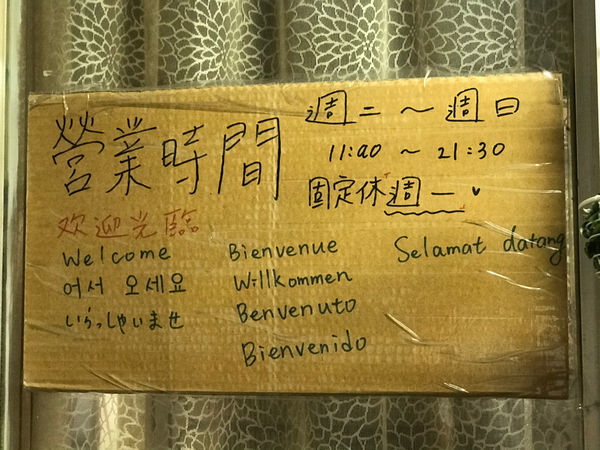 營業時間
週二～週日
11:00 ~ 21:30
固定休週一
欢迎光臨
Welcome
어서 오세요
いらっしゃいませ
Bienvenue
Willkommen
Benvenuto
Bienvenido
Selamat datang